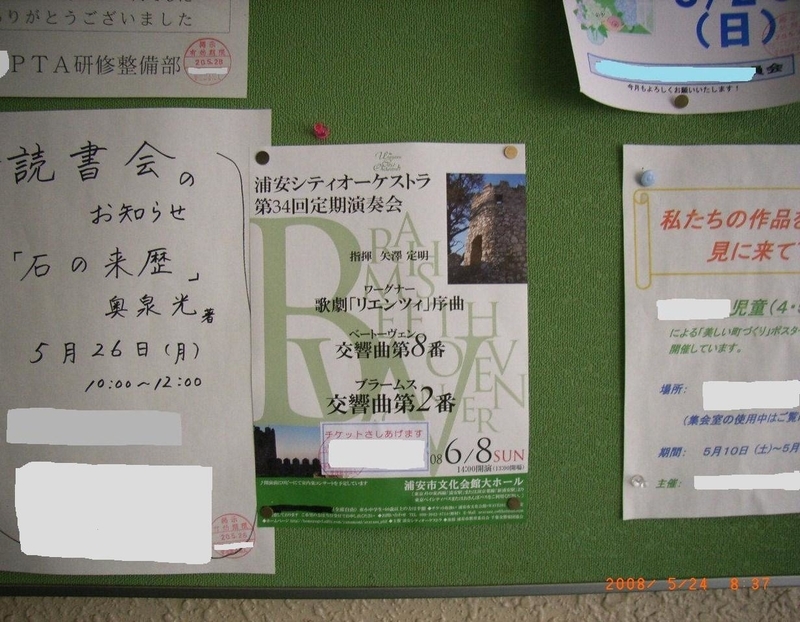 りがとうございました
PTA研修整備部
読書会の
お知らせ
「石の来歴」
奥泉光著
5月26日(月)
10:00〜12:00
浦安シティオーケストラ
第34回定期演奏会
指揮 矢澤 定明
ワーグナー
歌劇「リエンツィ」序曲
ベートーヴェン
交響曲第8番
ブラームス
交響曲第2番
BRAHMS
BEETHOVEN
チケットさしあげます
08 6/8 SUN
14:00開演(13:00開場)
浦安市文化会館大ホール
(日)
今月もよろしくお願いいたします!
私たちの作品を
見に来て
児童(4・
による「美しい町づくり」ポスタ
開催しています。
場所:
(集会室の使用中はご覧
期間: 5月10日(土)〜5月
主催:
2008/ 5/24 8:37